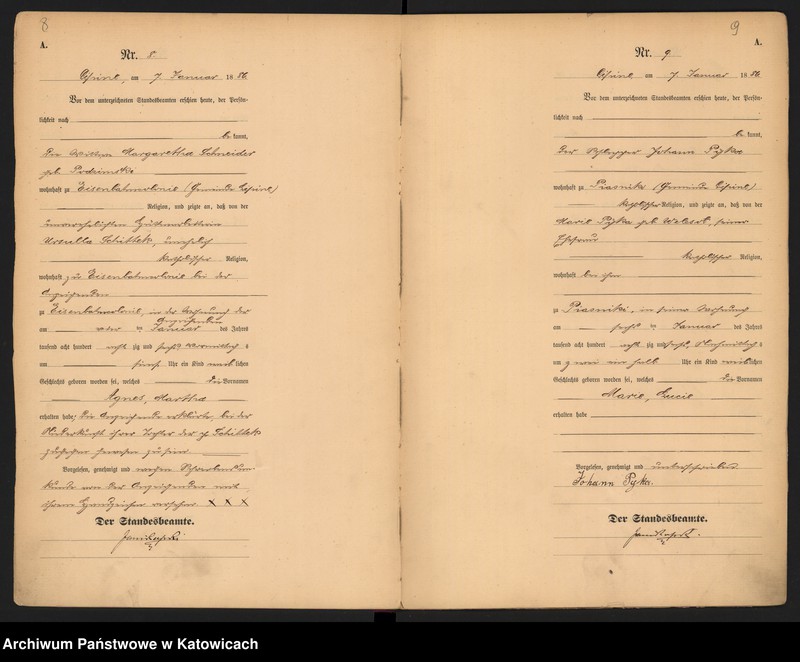 8
A.
Nr. 8
am 7 Januar 1886.
Vor dem unterzeichneten Standesbeamten erschien heute, der Persön-
lichkeit nach
be kannt,
Die Wittwe Margaretha Schneider
geb.
wohnhaft zu Eisenbahncolonie (Gemeinde
Religion, und zeigte an, daß von der
unverehelichten
Ursulla Schittek,
katholischer Religion,
wohnhaft zu Eisenbahncolonie bei der
Anzeigenden
zu Eisenbahncolonie, in der Wohnung der
Anzeigenden
am Januar des Jahres
tausend acht hundert acht zig und sechs Vormittags um
fünf Uhr ein Kind weiblichen
Geschlechts geboren worden sei, welches die Vornamen
Agnes, Martha
erhalten habe; die Anzeigende erklärte, bei der
Niederkunft ihrer Tochter der p. Schittek
zugegen gewesen zu sein.
Vorgelesen, genehmigt und wegen Schreibensun-
kunde von der Anzeigenden mit
ihrem Handzeichen versehen X X X
Der Standesbeamte.
9
A.
Nr. 9
am 7 Januar 1886.
Vor dem unterzeichneten Standesbeamten erschien heute, der Persön-
lichkeit nach
be kannt,
Der Schlepper Johann Pyka
wohnhaft zu Piasniki (Gemeinde
katholischer Religion, und zeigte an, daß von der
Marie Pyka geb. seiner
Ehefrau
katholischer Religion,
wohnhaft bei ihm
zu Piasniki, in seiner Wohnung
am sechs ten Januar des Jahres
tausend acht hundert acht zig und sechs, Nachmittags
um zwei ein halb Uhr ein Kind weiblichen
Geschlechts geboren worden sei, welches die Vornamen
Marie, Lucie
erhalten habe
Vorgelesen, genehmigt und unterschrieben
Johann Pyka.
Der Standesbeamte.
Archiwum Państwowe w Katowicach